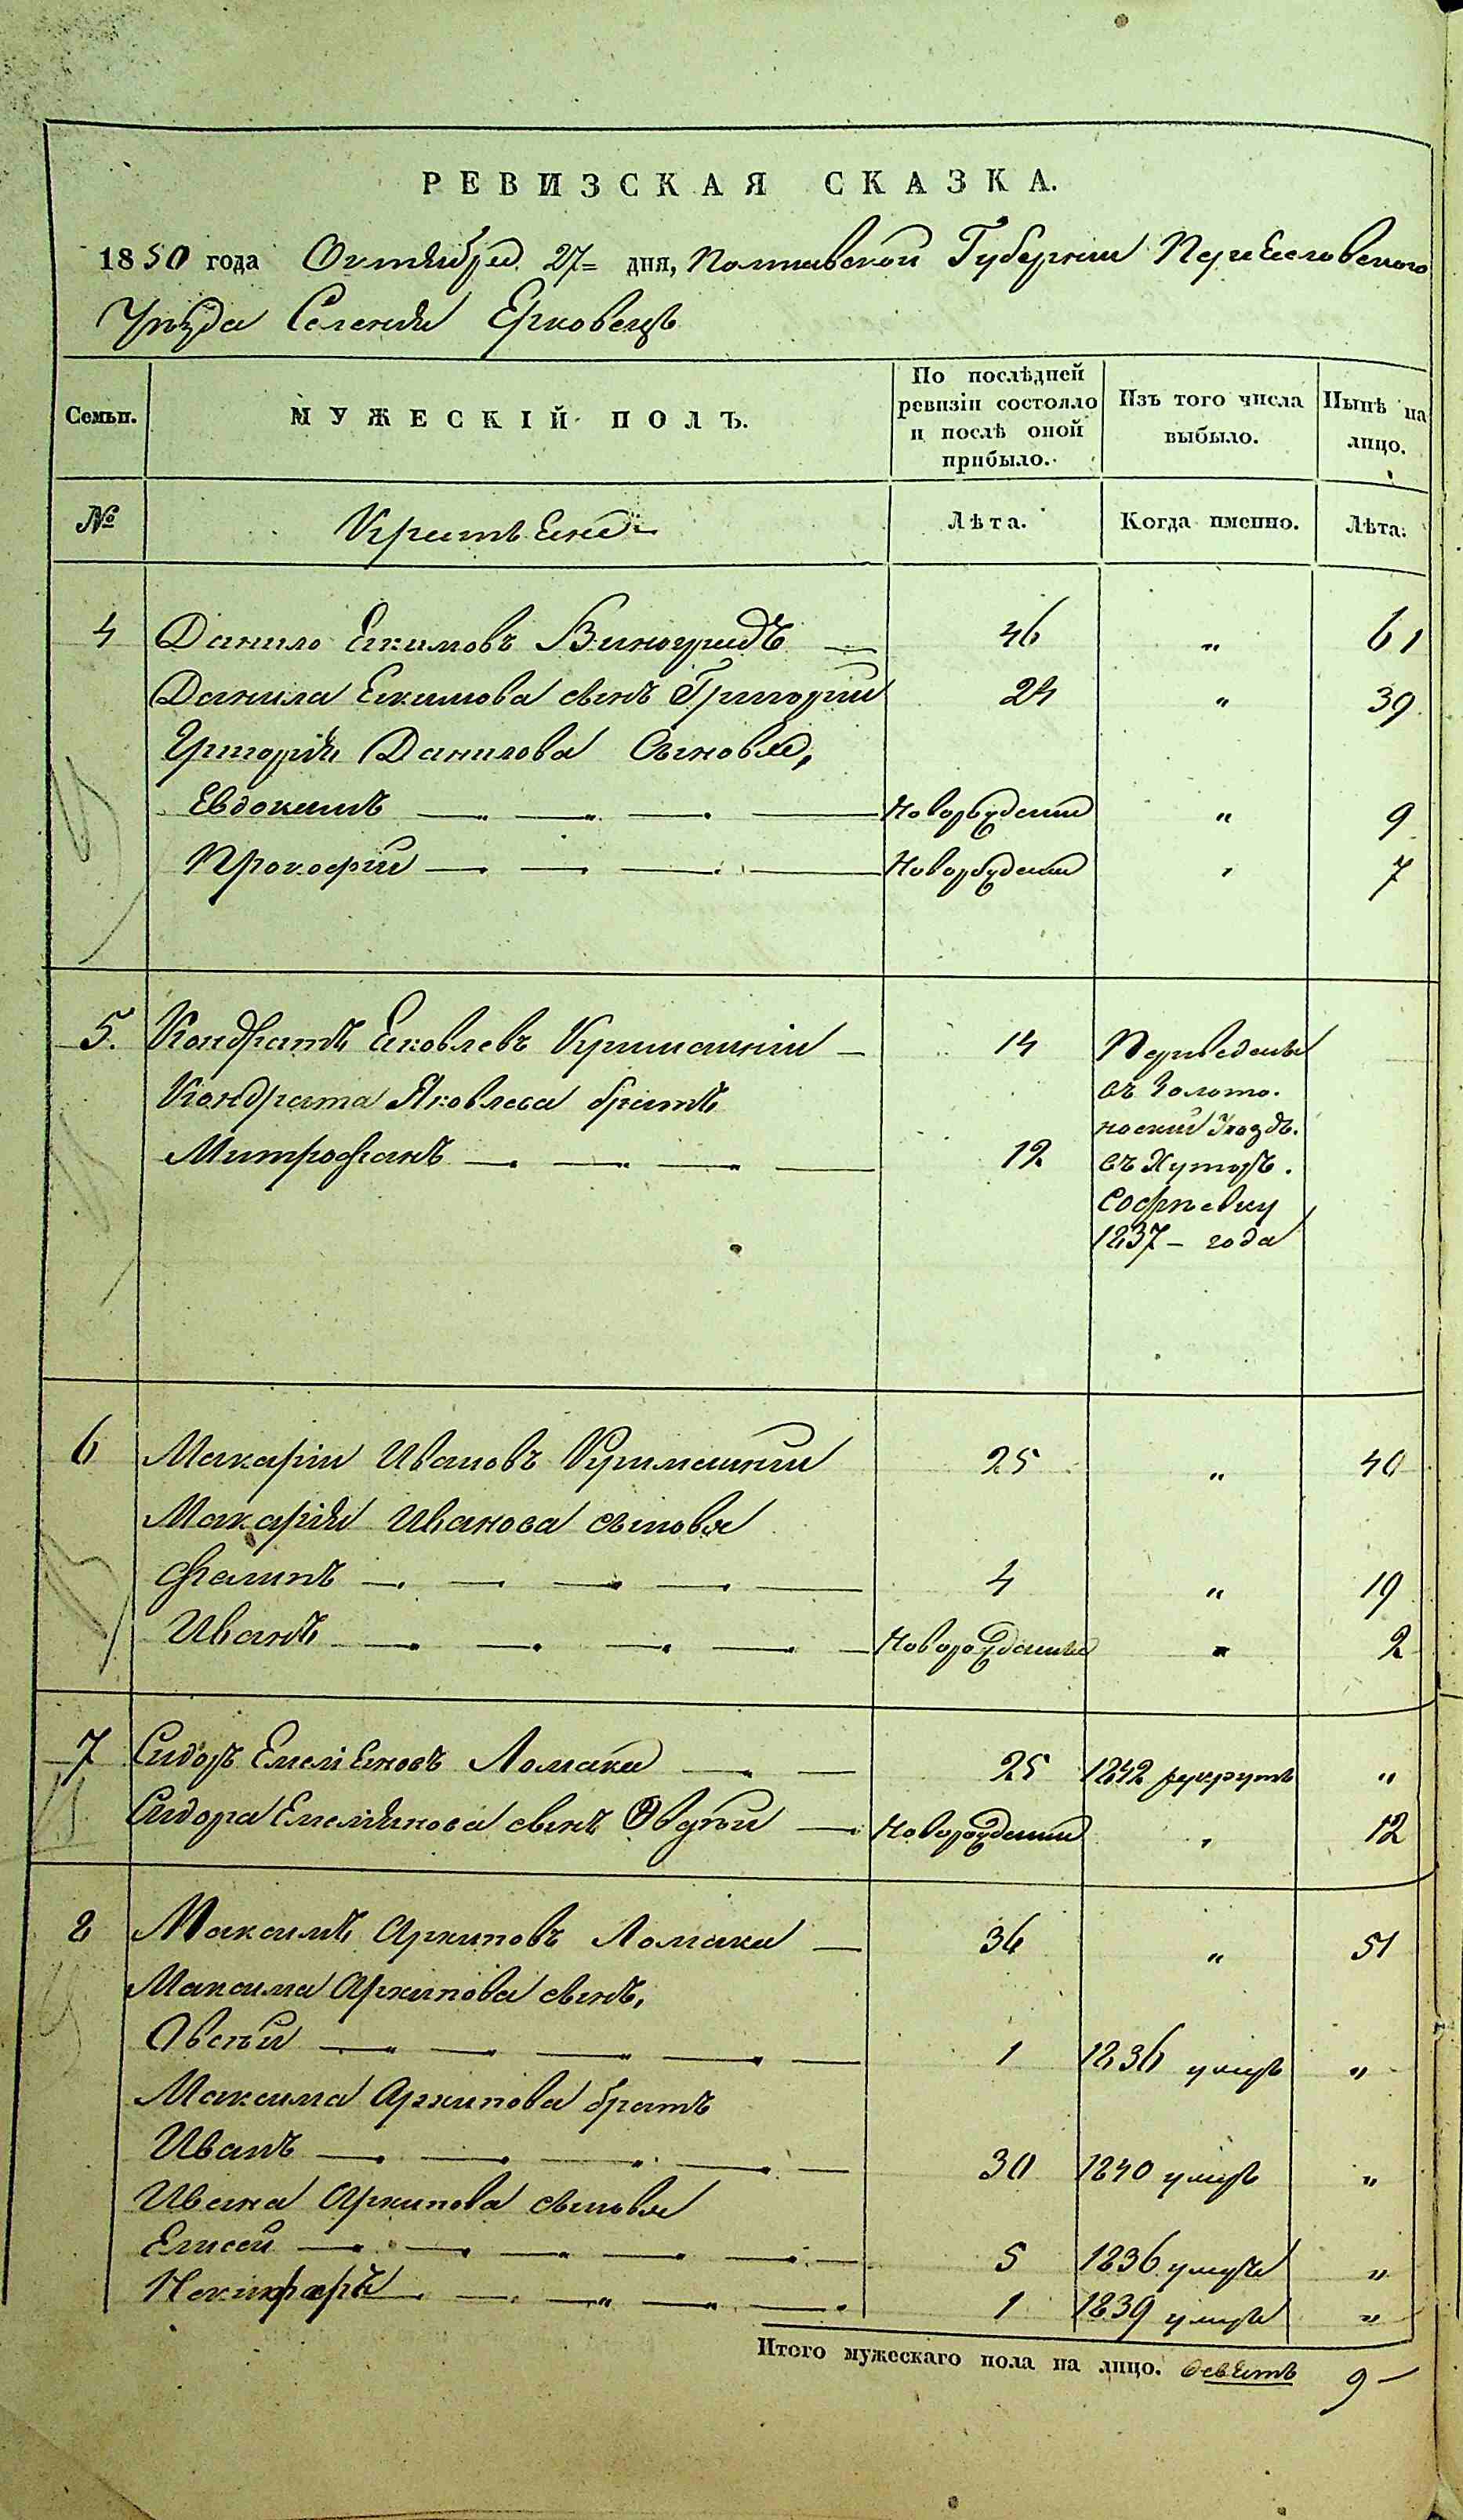 РЕВИЗСКАЯ СКАЗКА.
1850 года Октября 27 дня, Полтавской Губернии Переяславского
Уезда Селения Ерковецъ
Семьи. МУЖЕСКІЙ ПОЛЪ. По послѣдней ревизіи состояло и послѣ оной прибыло. Изъ того числа выбыло. Нынѣ на лицо.
№ Крестьяне Лѣта. Когда именно. Лѣта.
4 Данило Екимовъ Виноградъ — 46 „ 61
Данила Екимова сынъ Григорій 24 „ 39
Григорія Данилова Сыновья,
Евдокимъ — Новорожденный „ 9
Прокофій — Новорожденный „ 7
5. Кондратъ Яковлевъ — 14 Переведены
Кондрата Яковлева братъ въ Золото-
ноский Уездъ.
Митрофанъ — 12 въ Хуторъ.
Софіевку
1837 – года
6 Макарій Ивановъ 25 „ 40
Макарія Иванова сыновья
Филипъ — 4 „ 19
Иванъ — Новорожденный „ 2
7 Сидоръ Емеліяновъ Ломака — 25 1842 рекрутъ „
Сидора Емеліянова сынъ — Новорожденный „ 12
8 Максимъ Архиповъ Ломака — 36 „ 51
Максима Архипова сынъ,
Овсѣй — 1 1836 умеръ „
Максима Архипова братъ
Иванъ — 30 1840 умеръ „
Ивана Архипова сыновья
Елисей — 5 1836 умеръ „
Никифоръ — 1 1839 умеръ „
Итого мужескаго пола на лицо. девять 9 –